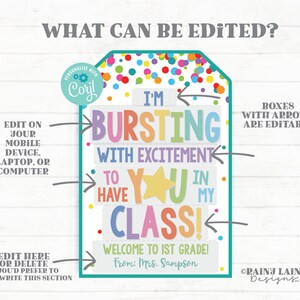 WHAT CAN BE EDITED?
PERSONALIZE WITH
Corjl
I'M
BURSTING
WITH EXCITEMENT
TO HAVE YOU IN MY
CLASS!
WELCOME TO 1ST GRADE!
From: Mrs. Sampson
EDIT ON
YOUR
MOBILE
DEVICE,
LAPTOP, OR
COMPUTER
BOXES
WITH ARROW
ARE EDITAB
EDIT HERE
OR DELETE
OU'D PREFER TO
WRITE THIS SECTION
©RAINJ LAIN
Designs